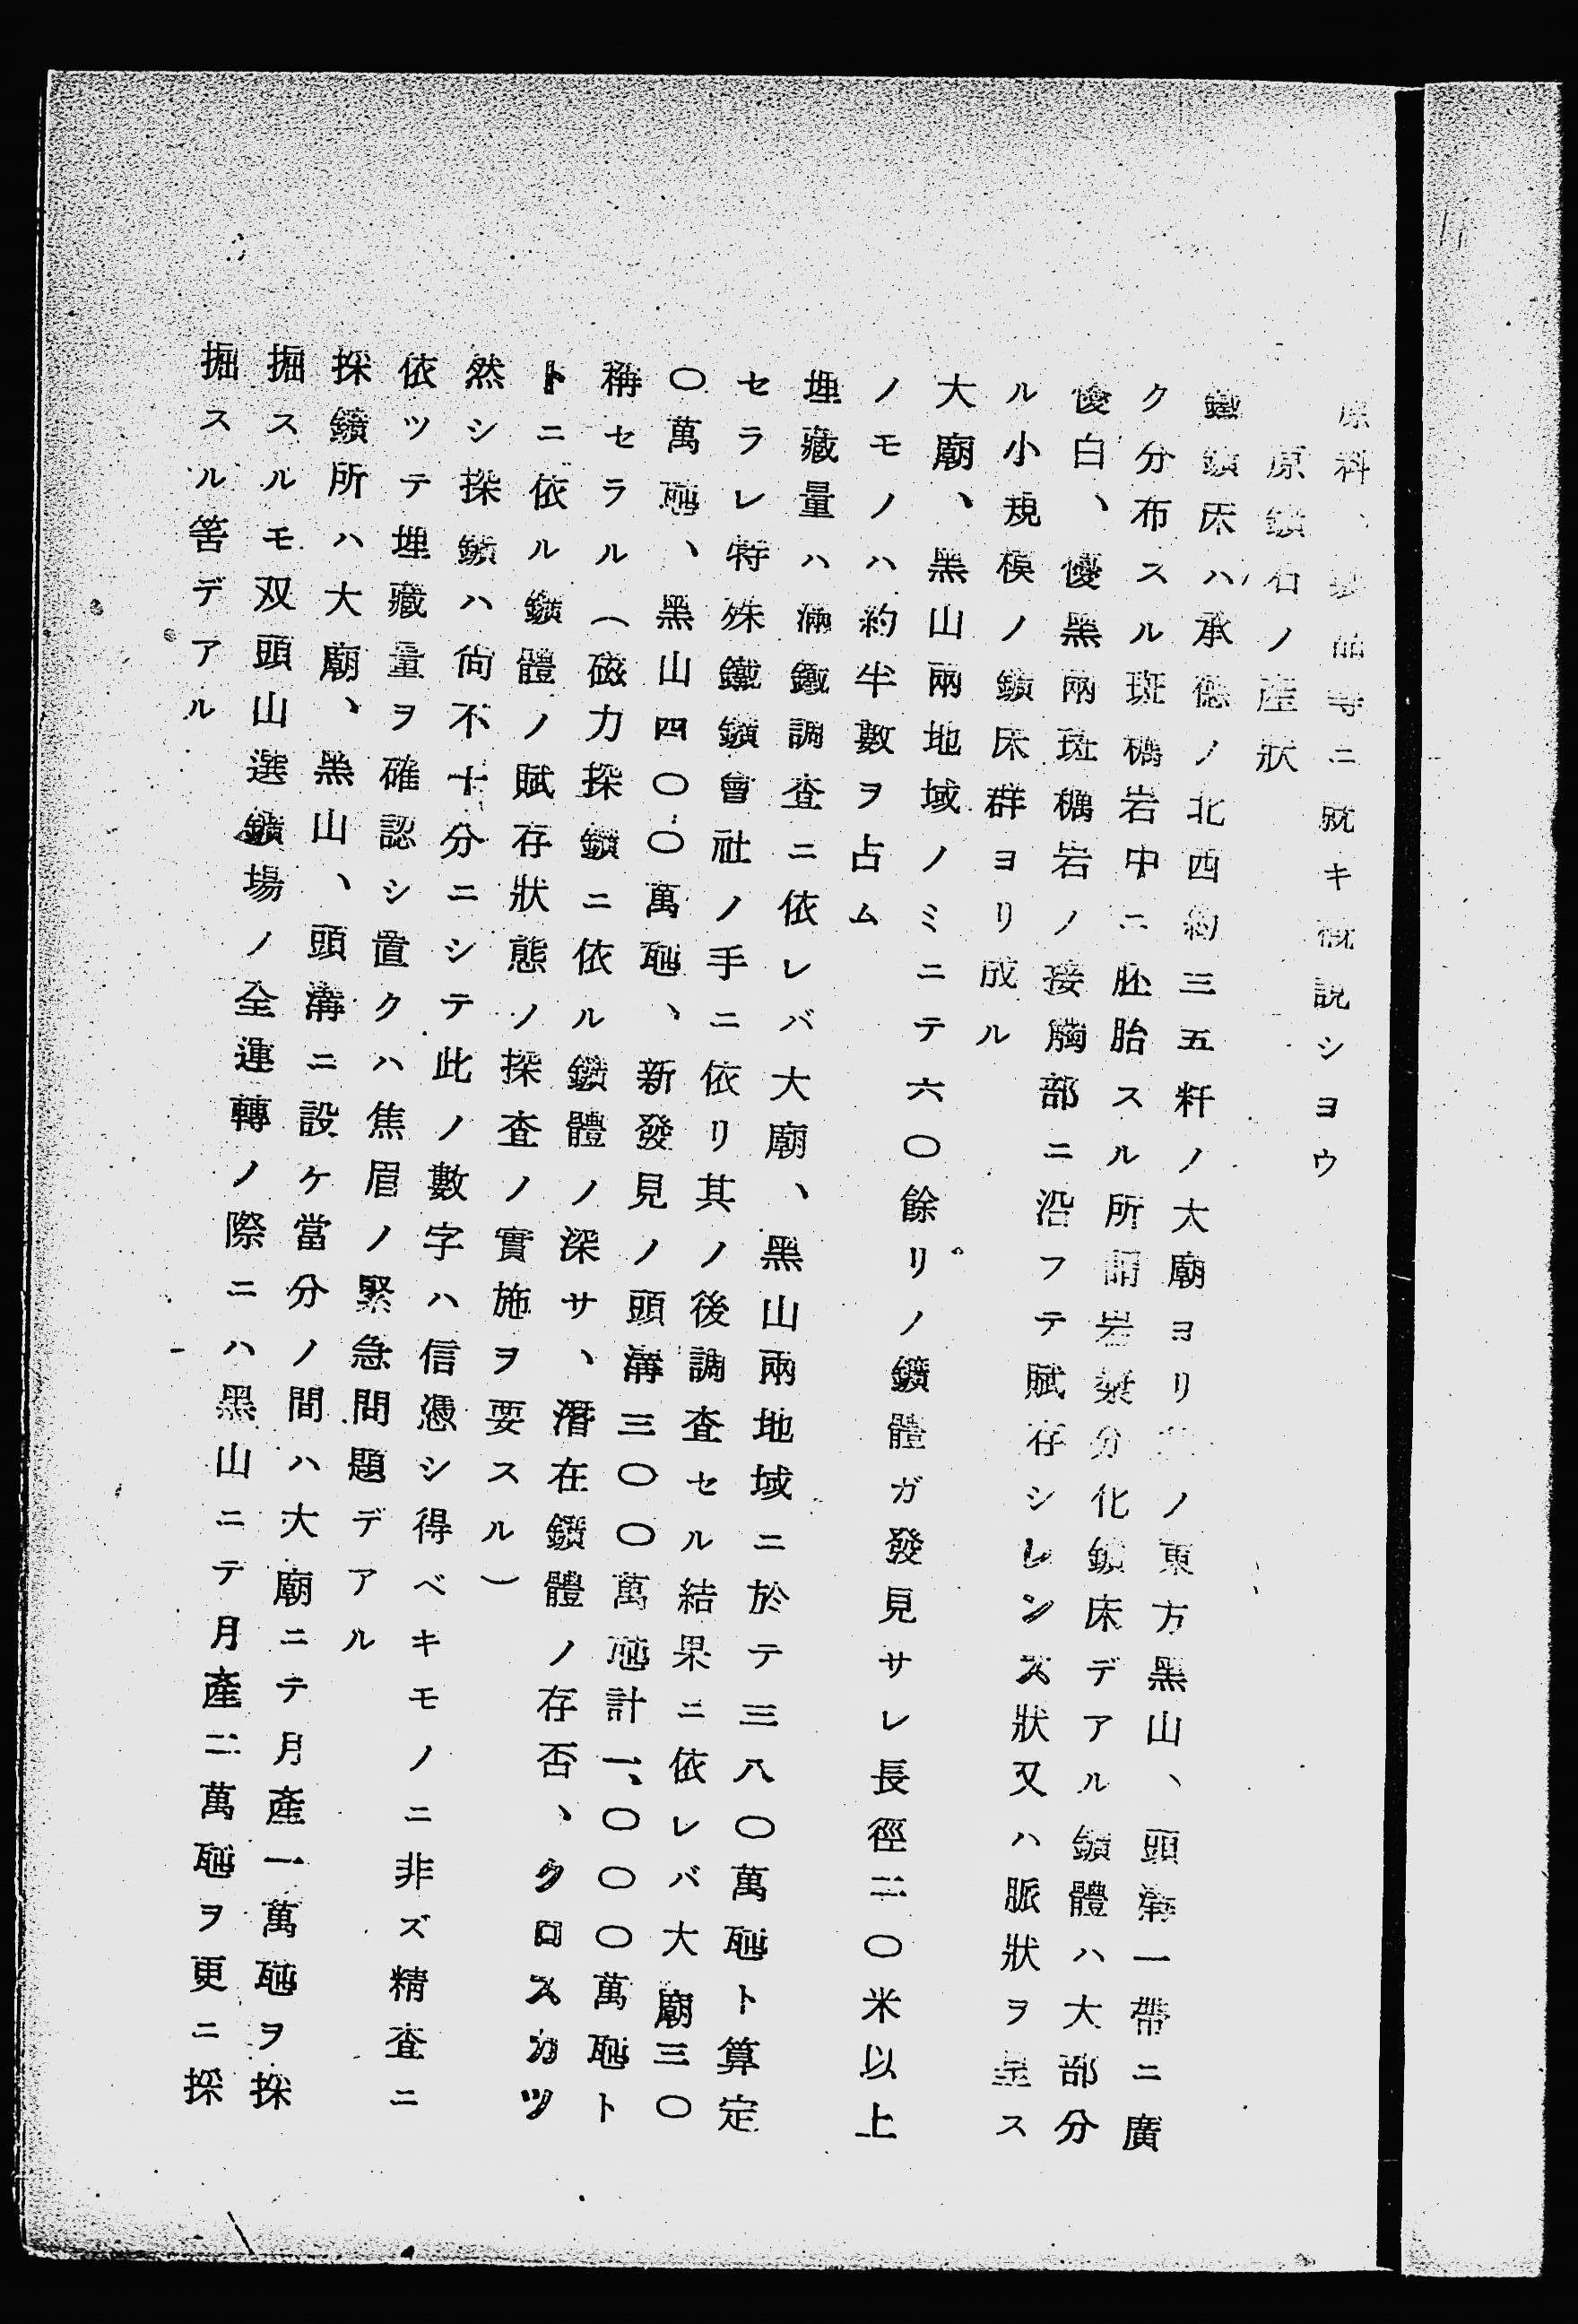 原料、製品等ニ就キ概説シヨウ
原鑛石ノ產狀
鐵鑛床ハ承德ノ北西約三五粁ノ大廟ヨリソノ東方黑山、頭溝一帶ニ廣
ク分布スル斑糲岩中ニ胚胎スル所謂岩漿分化鑛床デアル鑛體ハ大部分
優白、優黑兩斑糲岩ノ接觸部ニ沿フテ賦存シレンズ狀又ハ脈狀ヲ呈ス
ル小規模ノ鑛床群ヨリ成ル
大廟、黑山兩地域ノミニテ六〇餘リノ鑛體ガ發見サレ長徑二〇米以上
ノモノハ約半數ヲ占ム
埋藏量ハ滿鐵調査ニ依レバ大廟、黑山兩地域ニ於テ三八〇萬瓲ト算定
セラレ特殊鐵鑛會社ノ手ニ依リ其ノ後調査セル結果ニ依レバ大廟三〇
〇萬瓲、黑山四〇〇萬瓲、新發見ノ頭溝三〇〇萬瓲計一、〇〇〇萬瓲ト
稱セラル（磁力探鑛ニ依ル鑛體ノ深サ、潛在鑛體ノ存否、クロスカツ
トニ依ル鑛體ノ賦存狀態ノ探査ノ實施ヲ要スル）
然シ探鑛ハ尙不十分ニシテ此ノ數字ハ信憑シ得ベキモノニ非ズ精査ニ
依ツテ埋藏量ヲ確認シ置クハ焦眉ノ緊急問題デアル
採鑛所ハ大廟、黑山、頭溝ニ設ケ當分ノ間ハ大廟ニテ月產一萬瓲ヲ採
掘スルモ双頭山選鑛場ノ全運轉ノ際ニハ黑山ニテ月產二萬瓲ヲ更ニ採
掘スル筈デアル